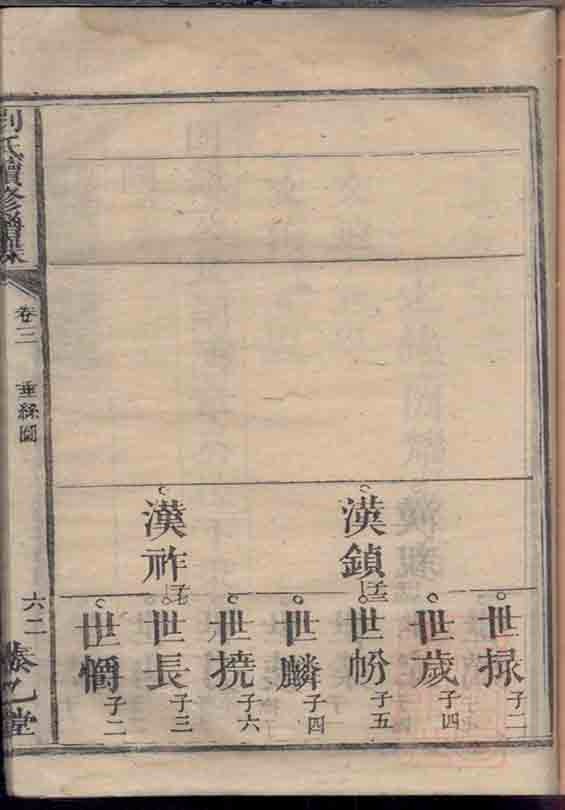 漢鎮
漢祚
世掃子二
世歲子四
世枌子五
世麟子四
世撓子六
世長子三
世子二
劉氏續修譜
卷三
垂絲圖
六二
藜乙堂